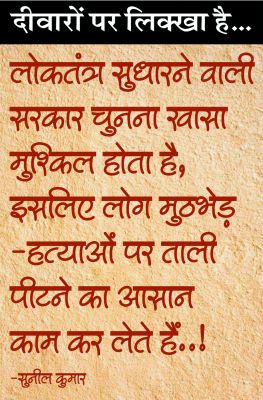 दीवारों पर लिक्खा है...
लोकतंत्र सुधारने वाली
सरकार चुनना खासा
मुश्किल होता है,
इसलिए लोग मुठभेड़
-हत्याओं पर ताली
पीटने का आसान
काम कर लेते हैं..!
-सुनील कुमार